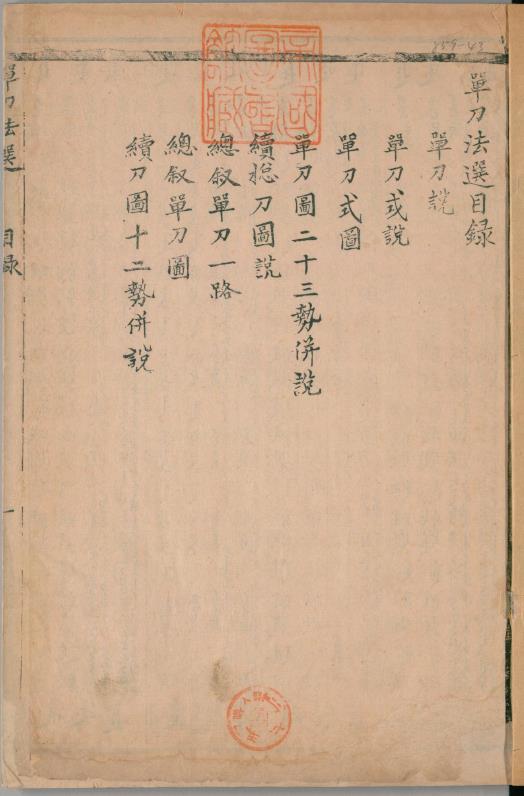 859-43
單刀法選目錄
單刀說
單刀式說
單刀式圖
單刀圖二十三勢併說
續總刀圖說
總叙單刀一路
總叙單刀圖
續刀圖十二勢併說
單刀法選 目錄 一